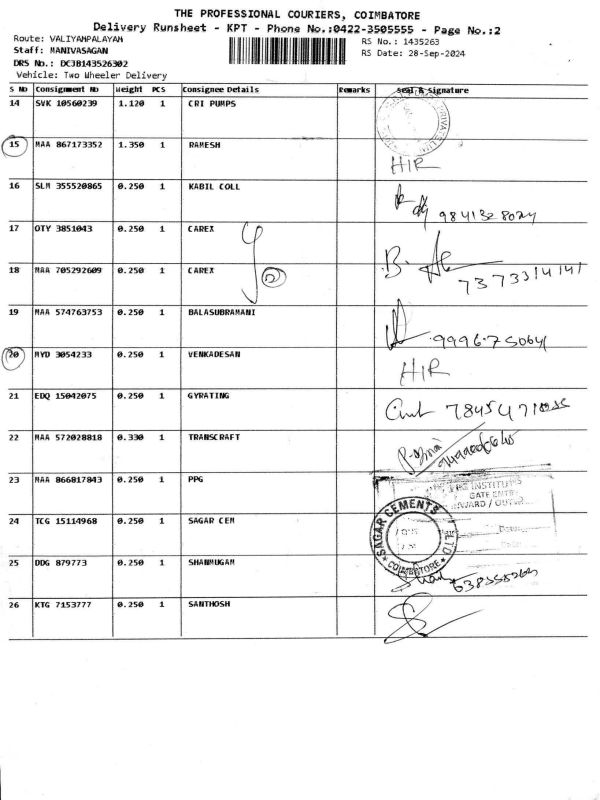 THE PROFESSIONAL COURIERS, COIMBATORE
Delivery Runsheet - KPT - Phone No.:0422-3505555 - Page No.:2
Route: VALIYAMPALAYAM
RS No.: 1435263
Staff: MANIVASAGAN
RS Date: 28-Sep-2024
DRS No.: DCJB143526302
Vehicle: Two Wheeler Delivery
S No Consignment No Weight PCS Consignee Details Remarks Seal & Signature
14 SVK 10560239 1.120 1 CRI PUMPS
15 MAA 867173352 1.350 1 RAMESH HIR
16 SLM 355520865 0.250 1 KABIL COLL 9841328024
17 OTY 3851043 0.250 1 CAREX
18 MAA 705292609 0.250 1 CAREX 7373314141
19 MAA 574763753 0.250 1 BALASUBRAMANI 9996750641
20 MYD 3054233 0.250 1 VENKADESAN HIR
21 EDQ 15042075 0.250 1 GYRATING
22 MAA 572028818 0.330 1 TRANSCRAFT
23 MAA 866817843 0.250 1 PPG
INSTITUTS
GATE ENTRY
24 TCG 15114968 0.250 1 SAGAR CEM
SAGAR CEMENTS
COIMBATORE
25 DDG 879773 0.250 1 SHANMUGAM
26 KTG 7153777 0.250 1 SANTHOSH